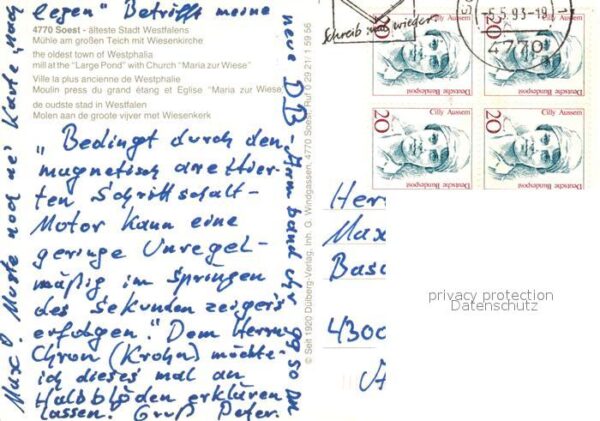 legen" Betrifft meine
4770 Soest - älteste Stadt Westfalens
Mühle am großen Teich mit Wiesenkirche
the oldest town of Westphalia
mill at the "Large Pond" with Church "Maria zur Wiese"
Ville la plus ancienne de Westphalie
Moulin press du grand étang et Eglise "Maria zur Wiese"
de oudste stad in Westfalen
Molen aan de groote vijver met Wiesenkerk
"Bedingt durch den
magnetisch arretier-
ten Schrittschalt-
Motor kann eine
geringe Unregel-
mäßig im Springen
des Sekundenzeigers
erfolgen." Dem Herrn
Chron (Krohn) möchte
ich dieses mal an
Halbblöden erklären
lassen. Gruß Peter.
Max! Mußte noch ne' Karte "nach
neue DB-Armbanduhr 99 so DM
© Seit 1920 Dülberg-Verlag, Inh. G. Windgassen, 4770 Soest, Ruf 0 29 21/1 59 56
schreib mal wieder
-5.5.93-19
4770
20
Cilly Aussem
Deutsche Bundespost
20
Cilly Aussem
Deutsche Bundespost
20
Cilly Aussem
Deutsche Bundespost
20
Cilly Aussem
Deutsche Bundespost
Her
Max
Bas
4300
privacy protection
Datenschutz